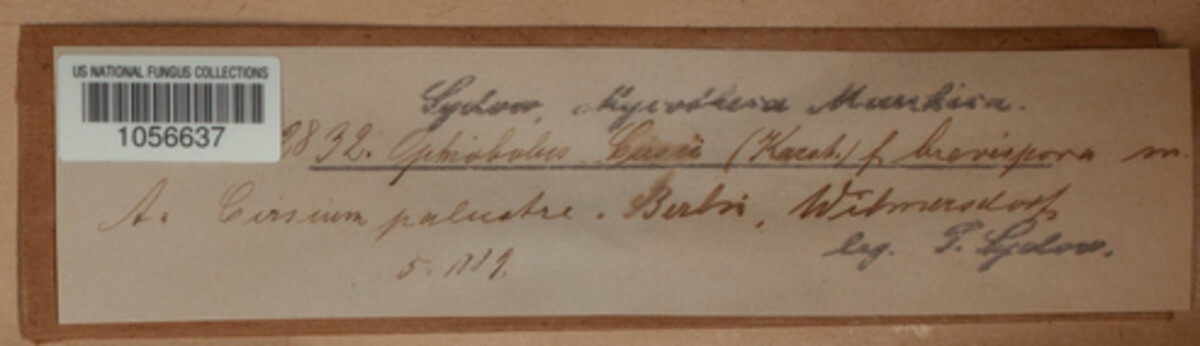 US NATIONAL FUNGUS COLLECTIONS
1056637
Sydow, Mycotheca Marchica.
2832. Ophiobolus (Karst.) f. brevispora m.
A. Cirsium palustre. Berlin, Wilmersdorf
5. 1889.
leg. P. Sydow.